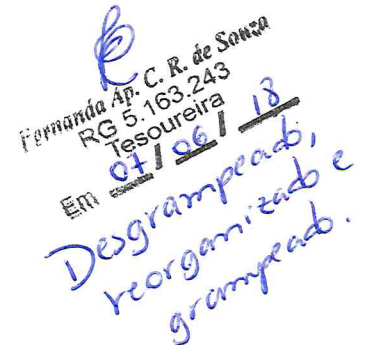 Fernanda Ap. C. R. de Souza
RG 5.163.243
Tesoureira
Em 07/06/18
Desgrampeado,
reorganizado e
grampeado.